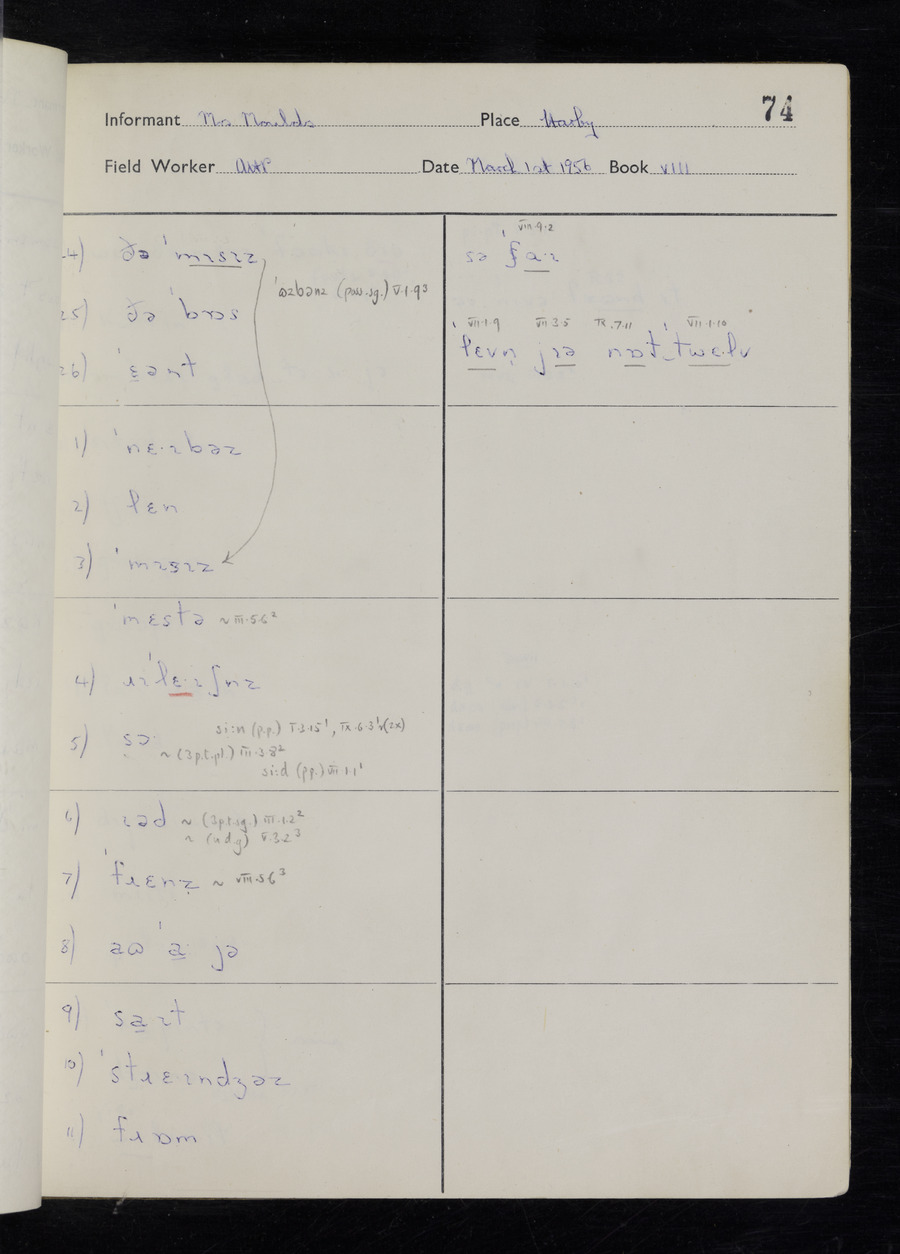 74
Informant Mrs Moulds Place Harby
Field Worker Date March 1st 1956 Book VIII
4) ðə ˈmɪsɪz
ˈɷzbənz (poss.sg.) V.1.9³
5) ðə ˈbɒs
6) ˈɛənt
1) ˈnɛ·ɪbəz
2) lɛn
3) ˈmɪsɪz
ˈmɛstə ~ III.5.6²
4) ɹɪˈlɛ·ɪʃnz
5) sə·
si:n (p.p.) V.3.15¹, IX.6.3¹ (2x)
~ (3p.t.pl.) III.3.8²
si:d (pp.) VII.1.1¹
6) ɪəd ~ (3pt.sg.) III.1.2²
~ (adj) V.3.2³
7) ˈfɹɛnz̩ ~ VIII.5.6³
8) aɷ ˈa· jə
9) saɪt
10) ˈstɹɛɪndʒəz
11) fɹɒm
VIII.9.2
sə ˈfa·ɪ
VII.1.9 VII.3.5 IX.7.11 VII.1.10
ˈlɛvn̩ jɪə nɒt ˈtwɛ·lv